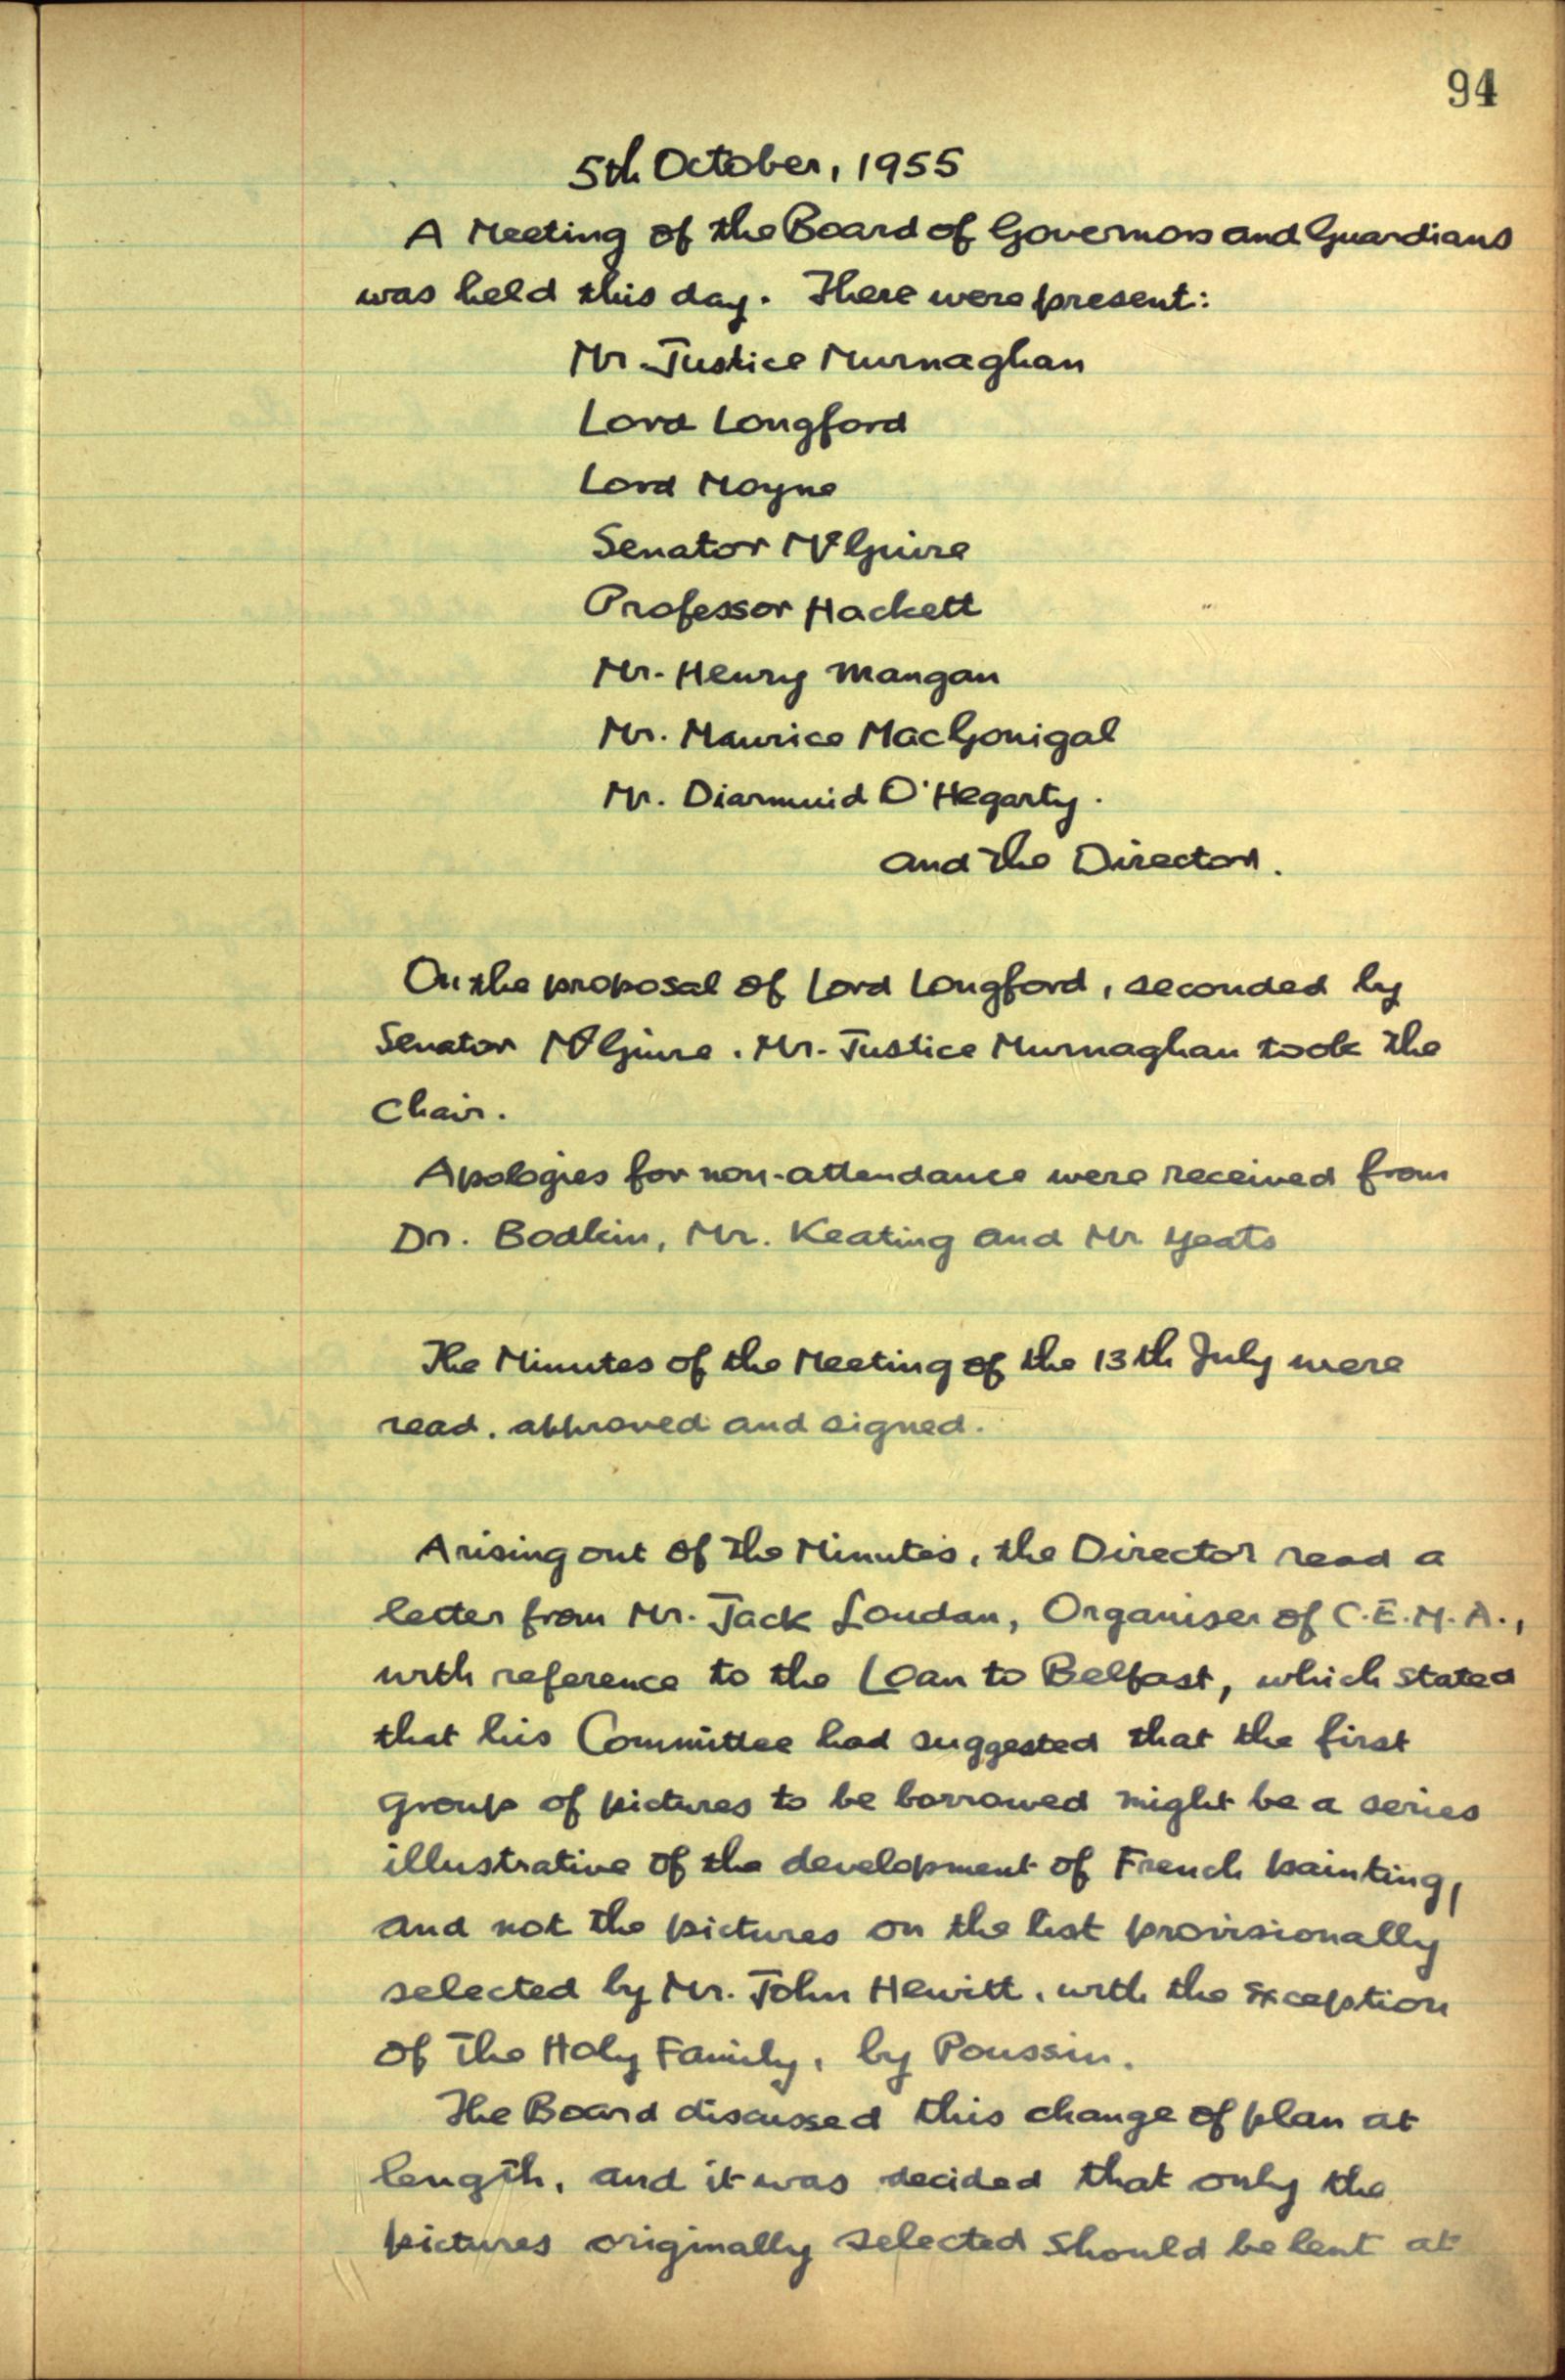 94
5th October, 1955
A Meeting of the Board of Governors and Guardians
was held this day. There were present:
Mr. Justice Murnaghan
Lord Longford
Lord Moyne
Senator McGuire
Professor Hackett
Mr. Henry Mangan
Mr. Maurice MacGonigal
Mr. Diarmuid O'Hegarty.
and the Director.
On the proposal of Lord Longford, seconded by
Senator McGuire, Mr. Justice Murnaghan took the
Chair.
Apologies for non-attendance were received from
Dr. Bodkin, Mr. Keating and Mr Yeats
The Minutes of the Meeting of the 13th July were
read, approved and signed.
Arising out of the Minutes, the Director read a
letter from Mr. Jack Loudan, Organiser of C.E.M.A.,
with reference to the Loan to Belfast, which stated
that his Committee had suggested that the first
group of pictures to be borrowed might be a series
illustrative of the development of French painting,
and not the pictures on the list provisionally
selected by Mr. John Hewitt, with the exception
of The Holy Family, by Poussin.
The Board discussed this change of plan at
length, and it was decided that only the
pictures originally selected should be lent at